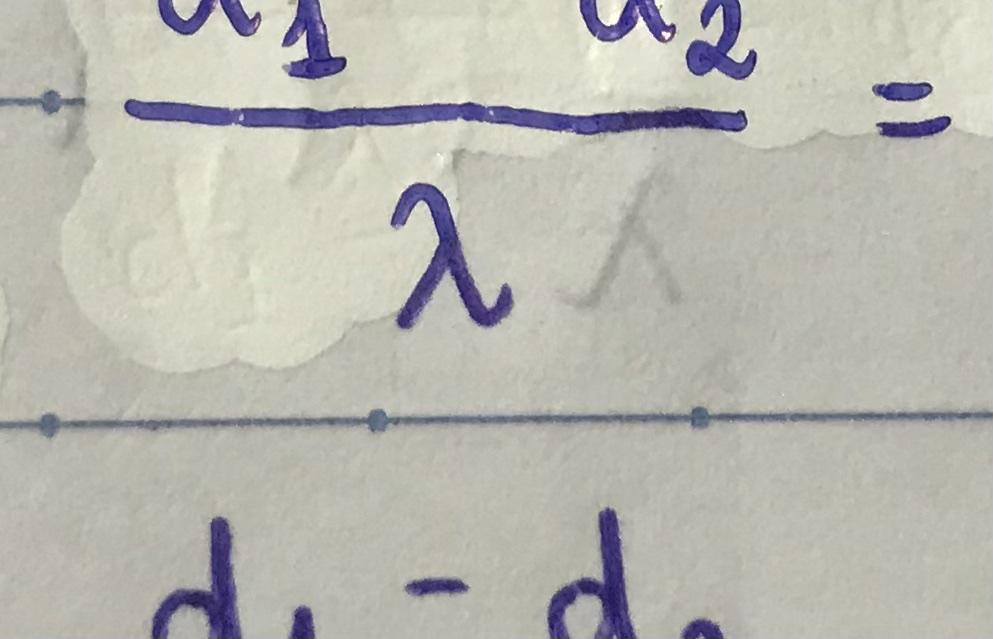 d₁ d₂ =
λ λ
d₁ - d₂